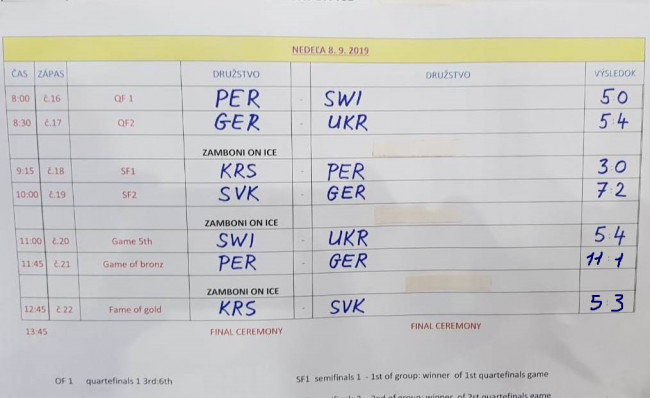 NEDEĽA 8. 9. 2019
ČAS ZÁPAS DRUŽSTVO DRUŽSTVO VÝSLEDOK
8:00 č.16 QF 1 PER - SWI 5 0
8:30 č.17 QF2 GER - UKR 5 4
ZAMBONI ON ICE
9:15 č.18 SF1 KRS - PER 3 0
10:00 č.19 SF2 SVK - GER 7 2
ZAMBONI ON ICE
11:00 č.20 Game 5th SWI - UKR 5 4
11:45 č.21 Game of bronz PER - GER 11 1
ZAMBONI ON ICE
12:45 č.22 Fame of gold KRS - SVK 5 3
13:45 FINAL CEREMONY FINAL CEREMONY
QF 1 quartefinals 1 3rd:6th SF1 semifinals 1 - 1st of group: winner of 1st quartefinals game
2nd of group: winner of 2st quartefinals game